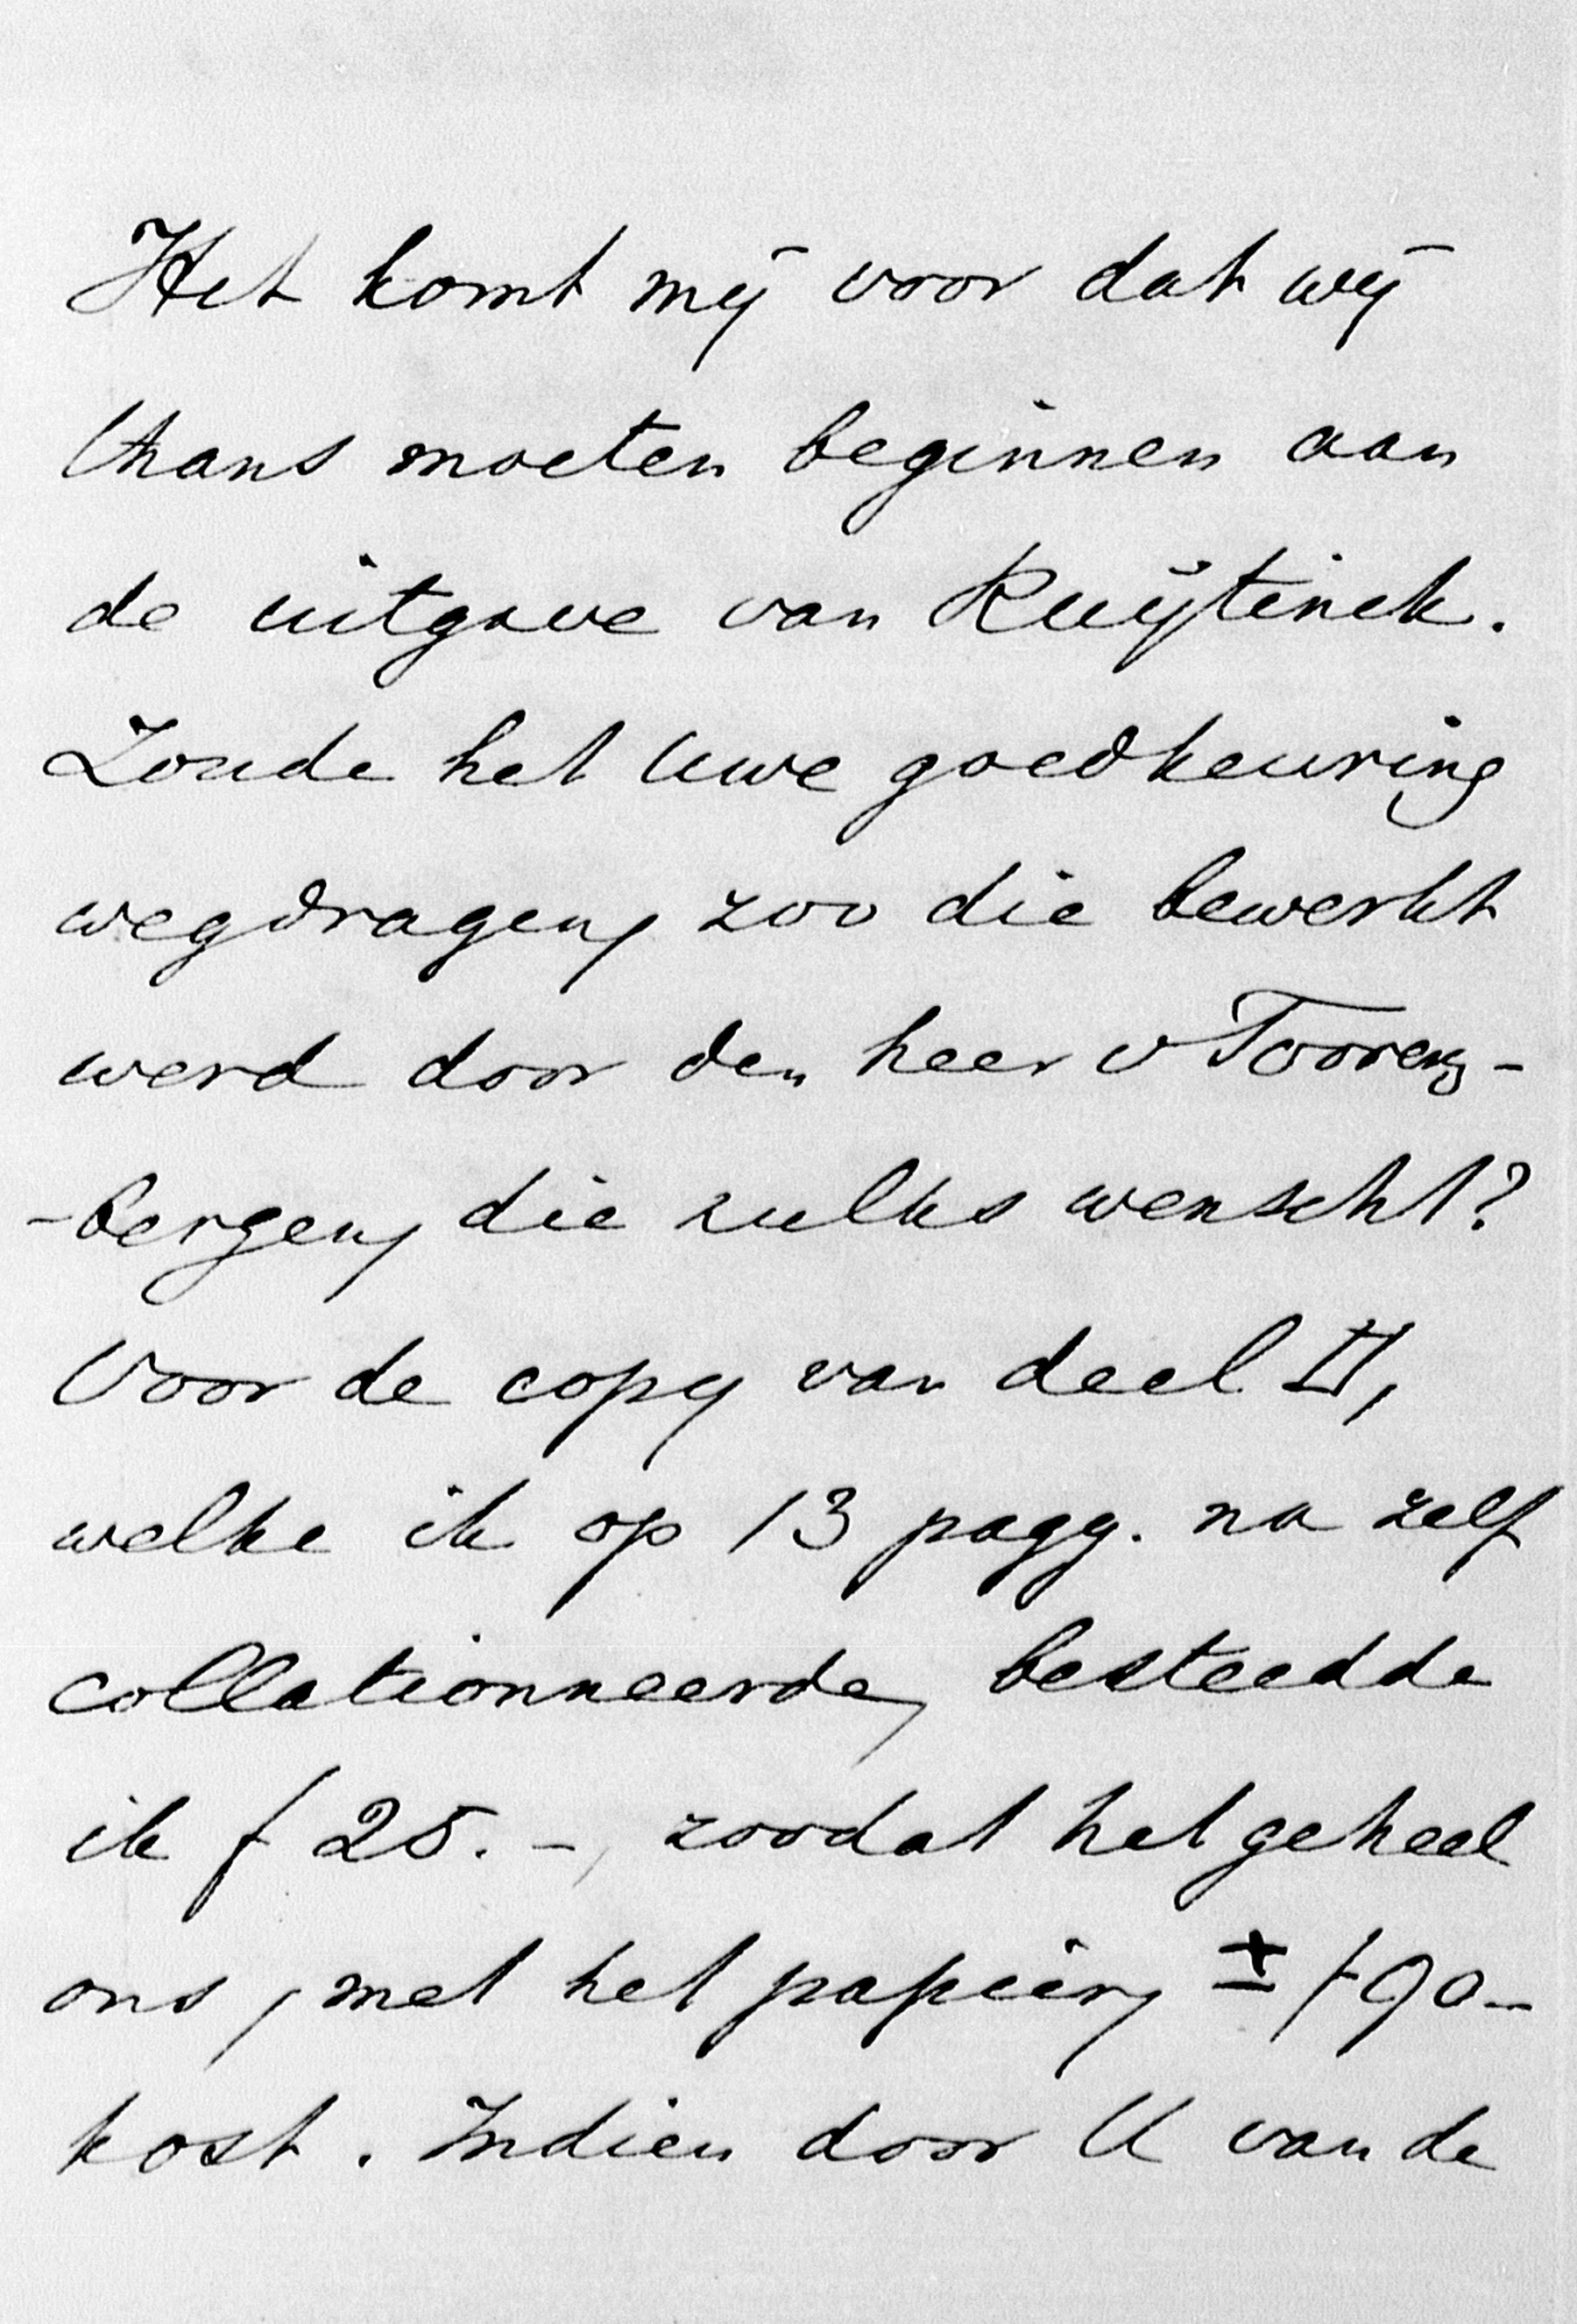 Het komt mij voor dat wij
thans moeten beginnen aan
de uitgave van Ruijtinck.
Zoude het Uwe goedkeuring
wegdragen, zoo die bewerkt
werd door den heer v Tooren-
-bergen, die zulks wenscht?
Voor de copy van deel II,
welke ik op 13 pagg. na zelf
collationneerde, besteedde
ik f 25.-, zoodat het geheel
ons, met het papier, ± f 90-
kost. Indien door U van de